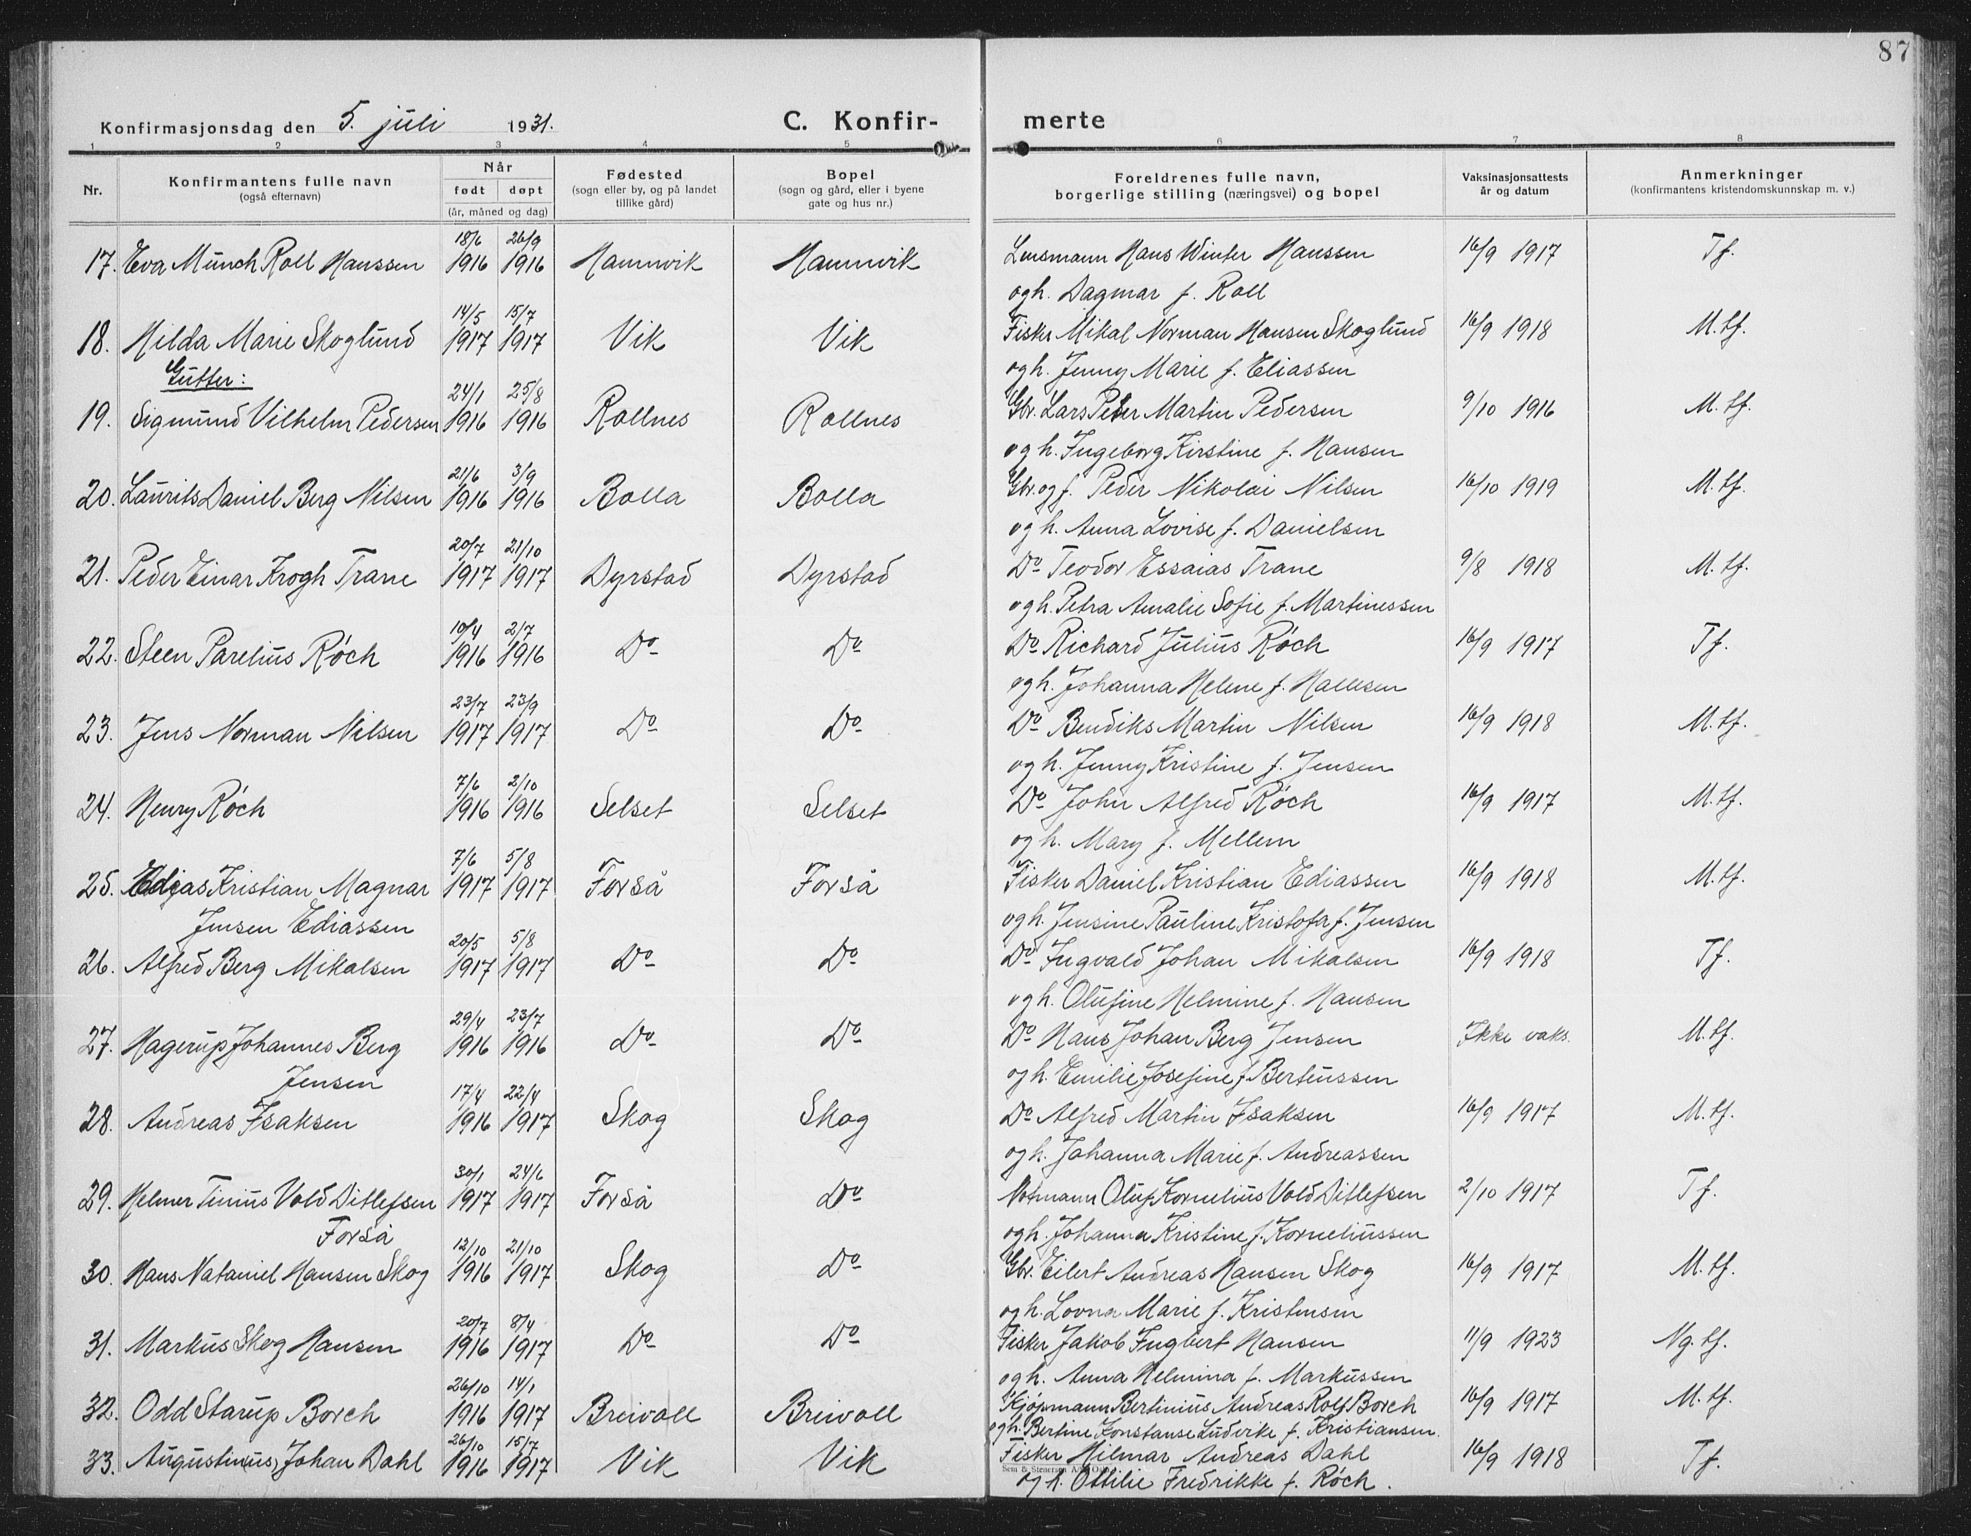 87
Konfirmasjonsdag den 5. juli 1931. C. Konfir- merte
1 2 3 4 5 6 7 8
Nr. Konfirmantens fulle navn (også efternavn) Når født døpt (år, måned og dag) Fødested (sogn eller by, og på landet tillike gård) Bopel (sogn og gård, eller i byene gate og hus nr.) Foreldrenes fulle navn, borgerlige stilling (næringsvei) og bopel Vaksinasjonsattests år og datum Anmerkninger (konfirmantens kristendomskunnskap m. v.)
17. Eva Munch Roll Hanssen 18/6 1916 26/9 1916 Hamnvik Hamnvik Lensmann Hans Winter Hanssen 16/9 1917 Tf.
og h. Dagmar f. Roll
18. Hilda Marie Skoglund 14/5 1917 15/7 1917 Vik Vik Fisker Mikal Norman Hansen Skoglund 16/9 1918 M.tf.
og h. Jenny Marie f. Eliassen
Gutter:
19. Sigmund Vilhelm Pedersen 24/1 1916 25/8 1916 Rollnes Rollnes Gbr. Lars Peder Martin Pedersen 9/10 1916 M.tf.
og h. Ingeborg Kirstine f. Hansen
20. Laurits Daniel Berg Nilsen 21/6 1916 3/9 1916 Bolla Bolla Gbr. og f. Peder Nikolai Nilsen 16/10 1919 M.tf.
og h. Anna Lovise f. Danielsen
21. Peder Einar Krogh Trane 20/7 1917 21/10 1917 Dyrstad Dyrstad Do Teodor Essaias Trane 9/8 1918 M.tf.
og h. Petra Amalie Sofie f. Martinessen
22. Steen Parelius Røch 10/4 1916 2/7 1916 Do Do Do Richard Julius Røch 16/9 1917 Tf.
og h. Johanna Helene f. Hallesen
23. Jens Norman Nilsen 23/7 1917 23/9 1917 Do Do Do Bendiks Martin Nilsen 16/9 1918 M.tf.
og h. Jenny Kristine f. Jensen
24. Henry Røch 7/6 1916 2/10 1916 Selset Selset Do John Alfred Røch 16/9 1917 M.tf.
og h. Mary f. Mellem
25. Edias Kristian Magnar 7/6 1917 5/8 1917 Forså Forså Fisker Daniel Kristian Ediassen 16/9 1918 M.tf.
Jensen Ediassen og h. Jensine Pauline Kristofa f. Jensen
26. Alfred Berg Mikalsen 20/5 1917 5/8 1917 Do Do Do Ingvald Johan Mikalsen 16/9 1918 Tf.
og h. Olufine Helmine f. Hansen
27. Hagerup Johannes Berg 29/4 1916 23/7 1916 Do Do Do Hans Johan Berg Jensen Ikke vaks. M.tf.
Jensen og h. Emilie Josefine f. Berteussen
28. Andreas Isaksen 17/4 1916 22/4 1917 Skog Skog Do Alfred Martin Isaksen 16/9 1917 M.tf.
og h. Johanna Marie f. Andreassen
29. Helmer Tinius Vold Ditlefsen 30/1 1917 24/6 1917 Forså Do Notmann Oluf Kornelius Vold Ditlefsen 2/10 1917 Tf.
Forså og h. Johanna Kristine f. Korneliussen
30. Hans Nataniel Hansen Skog 12/10 1916 21/10 1917 Skog Do Gbr. Eilert Andreas Hansen Skog 16/9 1917 M.tf.
og h. Lovna Marie f. Kristensen
31. Markus Skog Hansen 20/7 1916 8/4 1917 Do Do Fisker Jakob Ingbert Hansen 11/9 1923 Ng.tf.
og h. Anna Helmina f. Markussen
32. Odd Starup Borch 26/10 1916 14/1 1917 Breivoll Breivoll Kjøpmann Bertinius Andreas Rolf Borch 16/9 1917 M.tf.
og h. Bertine Konstanse Ludvike f. Kristiansen.
33. Augustin(us) Johan Dahl 26/10 1916 15/7 1917 Vik Vik Fisker Hilmar Andreas Dahl 16/9 1918 Tf.
Sem & Stenersen A/S, Oslo
og h. Ottilie Fredrikke f. Røch.